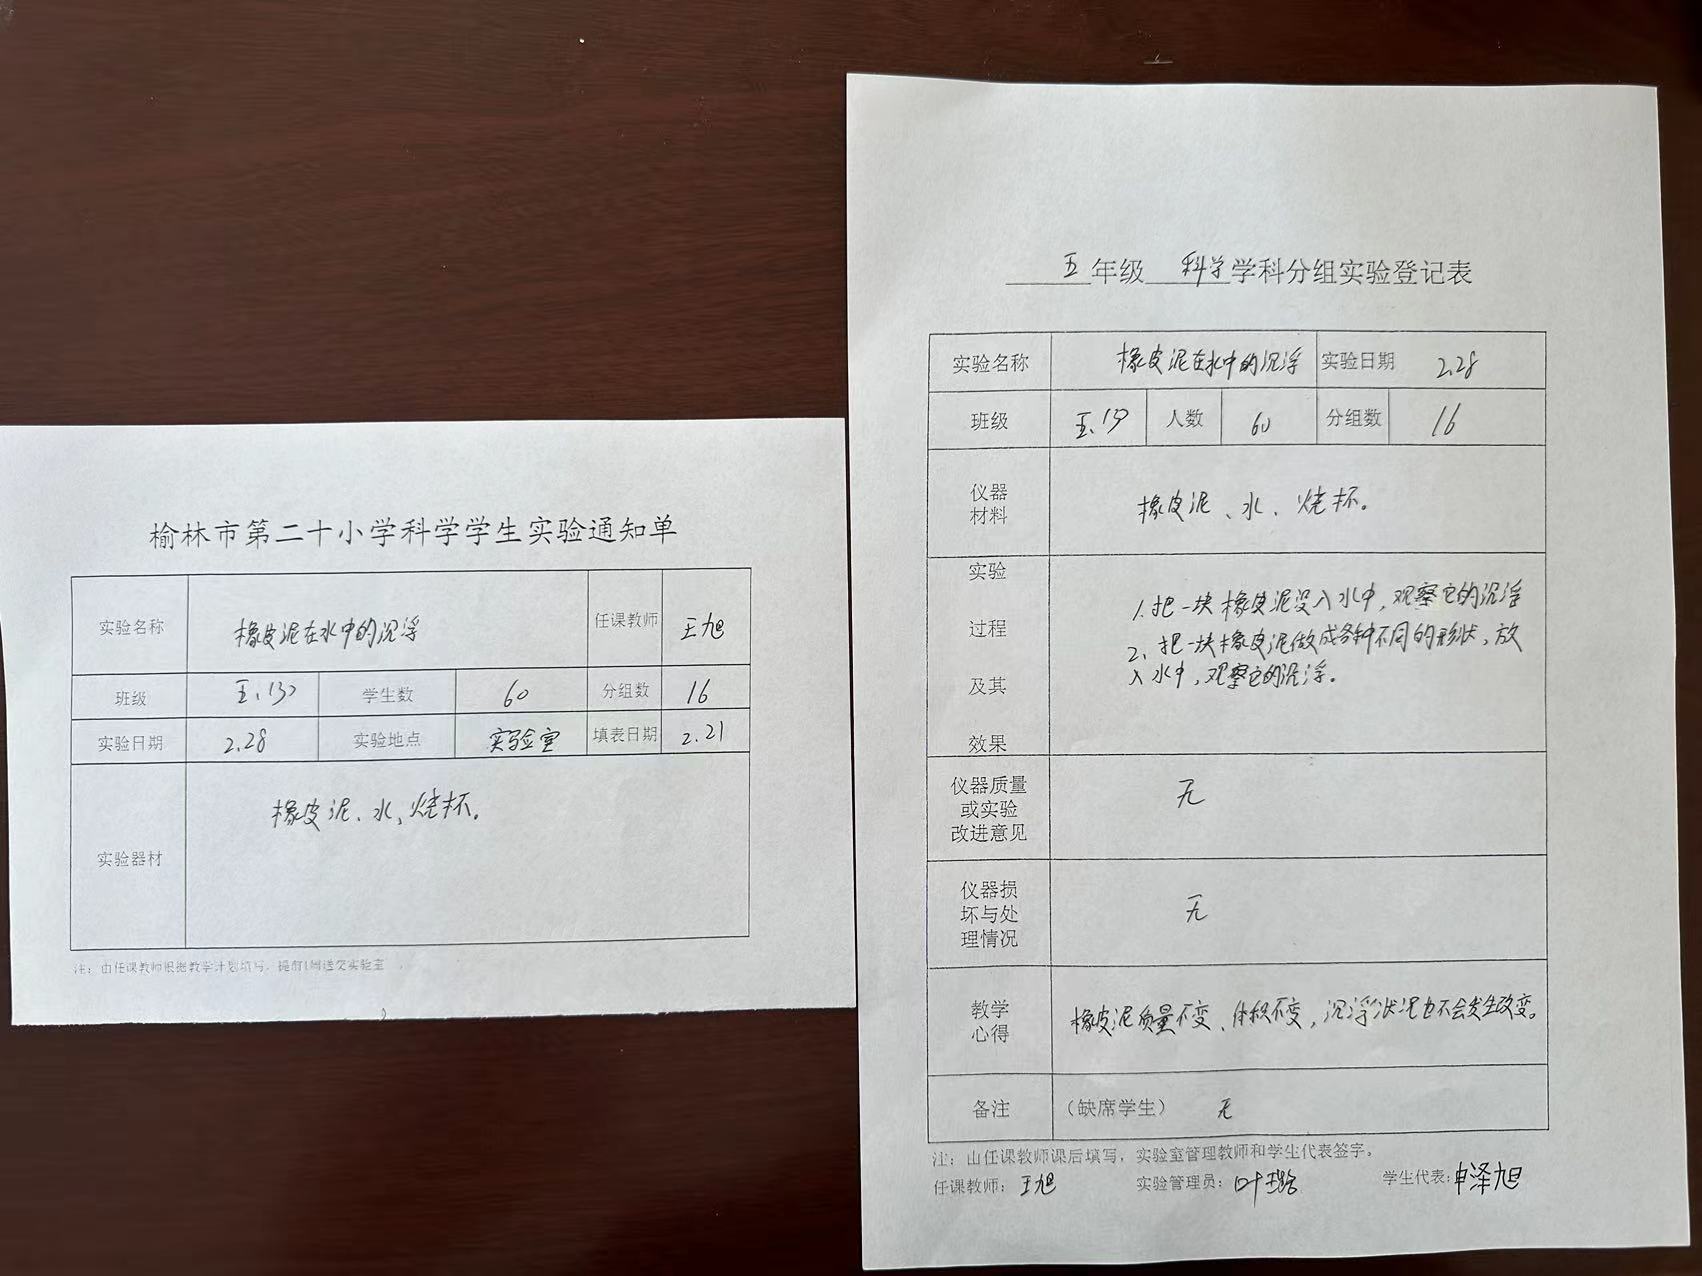 榆林市第二十小学科学学生实验通知单
实验名称 橡皮泥在水中的沉浮 任课教师 王旭
班级 五.13) 学生数 60 分组数 16
实验日期 2.28 实验地点 实验室 填表日期 2.21
实验器材 橡皮泥、水、烧杯。
注：由任课教师根据教学计划填写，提前1周送交实验室
五年级 科学学科分组实验登记表
实验名称 橡皮泥在水中的沉浮 实验日期 2.28
班级 五.13) 人数 60 分组数 16
仪器
材料
橡皮泥、水、烧杯。
实验
过程
及其
效果
1.把一块橡皮泥没入水中，观察它的沉浮
2、把一块橡皮泥做成各种不同的形状，放
入水中，观察它的沉浮。
仪器质量
或实验
改进意见
无
仪器损
坏与处
理情况
无
教学
心得
橡皮泥质量不变、体积不变，沉浮状况也不会发生改变。
备注 （缺席学生） 无
注：由任课教师课后填写，实验室管理教师和学生代表签字。
任课教师：王旭 实验管理员：叶璐 学生代表：申泽旭